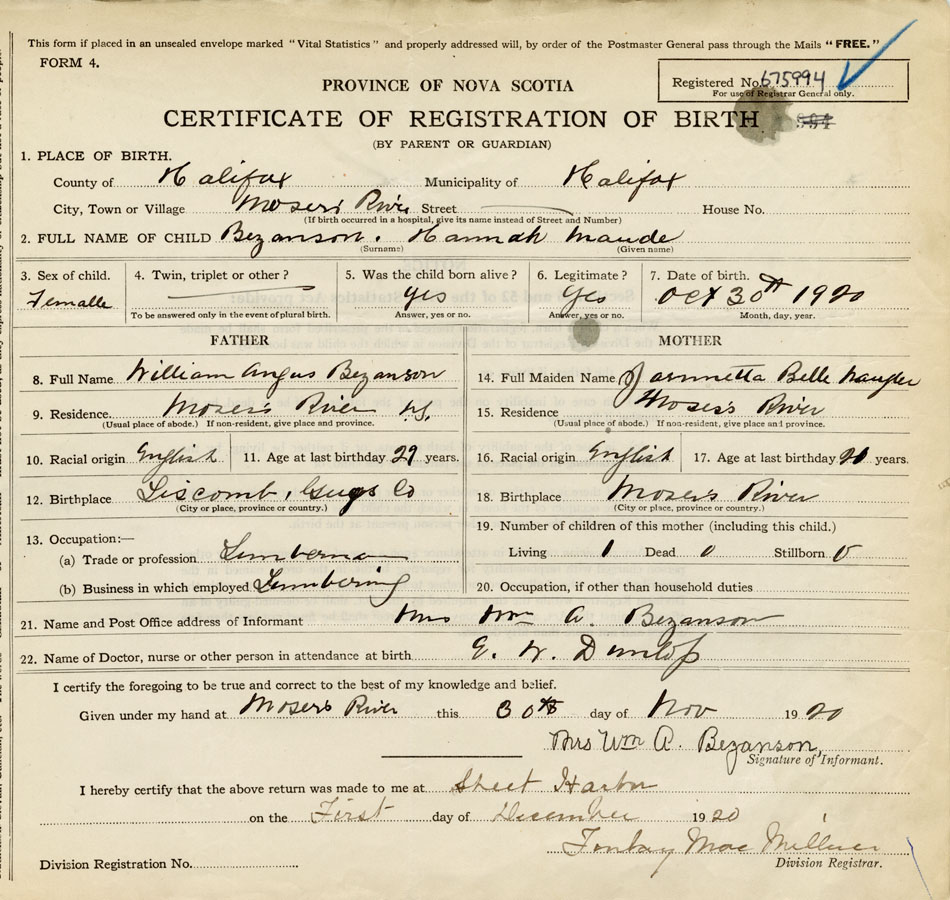 This form if placed in an unsealed envelope marked "Vital Statistics" and properly addressed will, by order of the Postmaster General pass through the Mails "FREE."
FORM 4.
Registered No. 675994
For use of Registrar General only.
PROVINCE OF NOVA SCOTIA
CERTIFICATE OF REGISTRATION OF BIRTH
(BY PARENT OR GUARDIAN)
1. PLACE OF BIRTH.
County of Halifax Municipality of Halifax
City, Town or Village Mosers River Street House No.
(If birth occurred in a hospital, give its name instead of Street and Number)
2. FULL NAME OF CHILD Bezanson. Hannah Maude
(Surname) (Given name)
3. Sex of child. 4. Twin, triplet or other? 5. Was the child born alive? 6. Legitimate? 7. Date of birth.
Femalle yes Yes Oct 30th 1920
To be answered only in the event of plural birth. Answer, yes or no. Answer, yes or no. Month, day, year.
FATHER
8. Full Name William Angus Bezanson
9. Residence Moser's River N.S.
(Usual place of abode.) If non-resident, give place and province.
10. Racial origin English 11. Age at last birthday 29 years.
12. Birthplace Liscomb, Guys Co
(City or place, province or country.)
13. Occupation:—
(a) Trade or profession Lumberman
(b) Business in which employed Lumbering
MOTHER
14. Full Maiden Name Belle Naugler
15. Residence Moser's River
(Usual place of abode.) If non-resident, give place and province.
16. Racial origin English 17. Age at last birthday 20 years.
18. Birthplace Moser's River
(City or place, province or country.)
19. Number of children of this mother (including this child.)
Living 1 Dead 0 Stillborn 0
20. Occupation, if other than household duties
21. Name and Post Office address of Informant Mrs Wm A. Bezanson
22. Name of Doctor, nurse or other person in attendance at birth E. W. Dunlop
I certify the foregoing to be true and correct to the best of my knowledge and belief.
Given under my hand at Mosers River this 30th day of Nov 1920
Mrs Wm A. Bezanson,
Signature of Informant.
I hereby certify that the above return was made to me at Sheet Harbor
on the First day of December 1920
Mac Millan
Division Registrar.
Division Registration No.